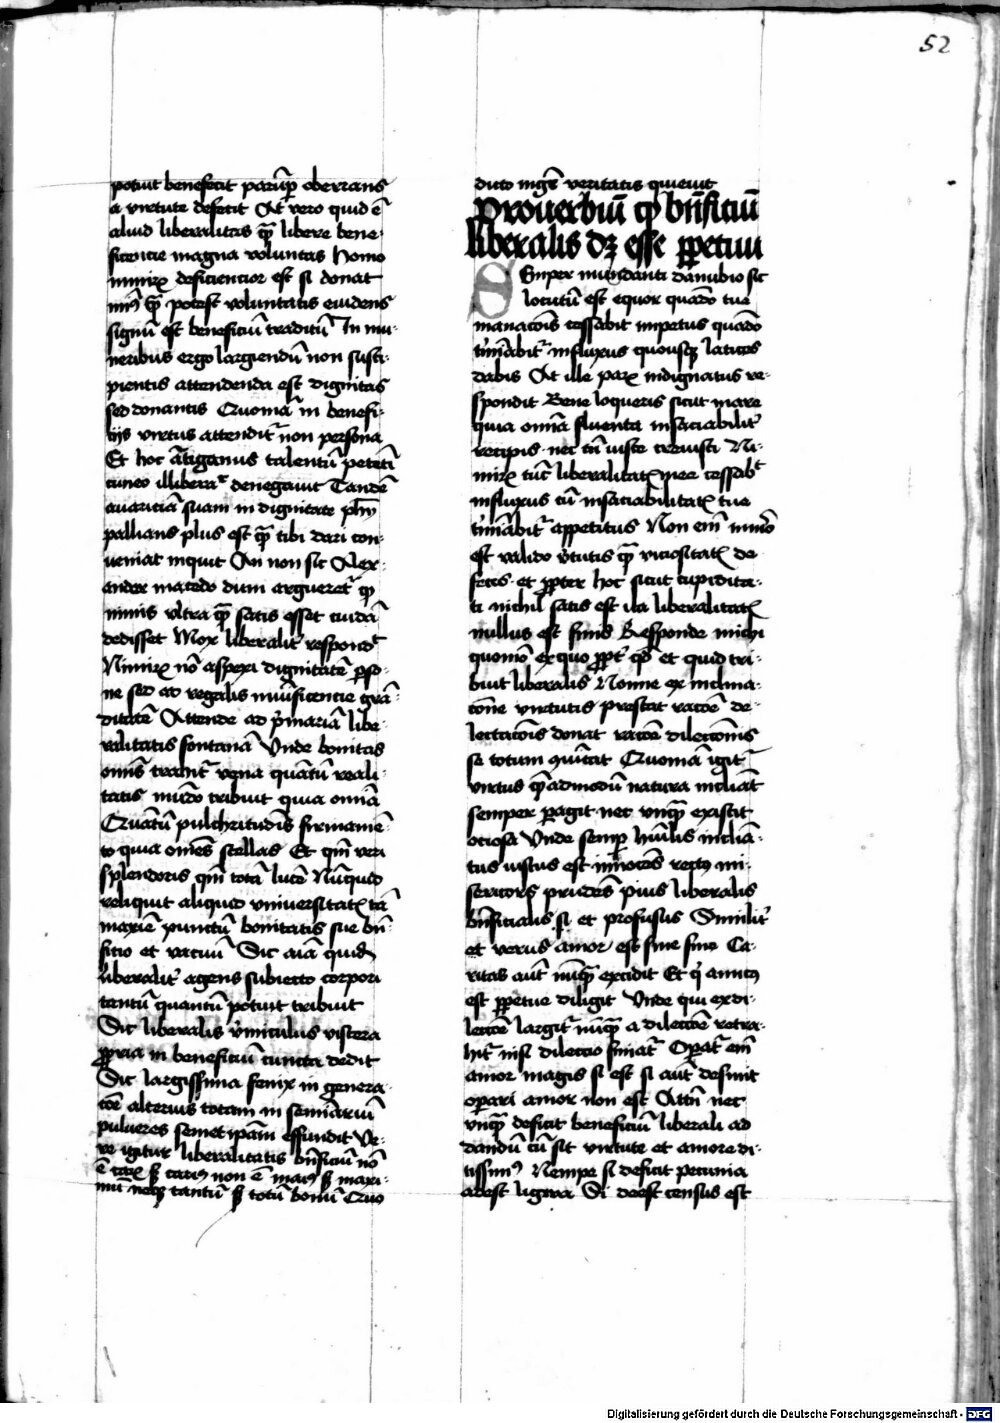 52
potuit benefecit parūp oberrans
a virtute defecit At vero quid ē
aliud liberalitas qᷓ libere bene-
ficentie magna voluntas Homo
nimirꝝ deficiencior est si donat
minꝰ qᷓ potest voluntatis euidens
signū est beneficiū traditū In mu-
neribus ergo largiendū non susci-
pientis attendenda est dignitas
sed donantis Quoniā in benefi-
cijs virtus attendit᷑ non persona
Et hoc ātigonus talentū petēti
cineo illibera᷑ denegauit Tandē
auariciā suam in dignitate
pallians plus est qᷓ tibi dari con-
ueniat inquit An non sic Alex-
ander macedo dum argueret᷑ ꝙ
nimis vltra qᷓ satis esset cuidā
dedisset Mox liberalit᷑ respond᷑
Nimirꝝ nō aspexi dignitatē pso-
ne sed ad regalis mūificentie grā-
ditatē Attende ad p̄mariā libe-
ralitatis fontanā Vnde bonitas
omīs trahit᷑ vena quātū reali-
tatis mūdo tribuit quia omīa
Quātū pulchritudīs firmamē-
to quia omēs stellas Et qm̄ veri
splendoris qm̄ totā lucē Nūquid
reliquit aliquod vniuersitatꝭ tā
maxiē punctū bonitatis sue bn̄-
ficio et vacuū Sic aīa quidē
liberalit᷑ agens subiecto corpori
tantū quantū potuit tribuit
Sic liberalis v̄miculus viscera
ꝓpria in beneficiū cuncta dedit
Sic largissima fenix in genera-
cōe alterius totam in semīariū
pulueres semetipam effundit Ve-
re igitur liberalitatis bn̄ficiū nō
ē carꝝ sꝫ carius non ē maiꝰ sꝫ maxi-
mū neqꝫ tantū sꝫ totū bonū Quo
dicto mgr̄ veritatis quieuit
Prouerbiū ꝙ bn̄ficiū
liberalis dꝫ esse ꝑpetuū
Semper mundanti danubio sic
locutū est equor quādo tue
manacōis cessabit impetus quādo
t᷑mīabit᷑ influxus quousqꝫ latices
dabis At ille parꝝ indignatus re-
spondit Bene loqueris sicut mare
quia omīa fluenta insaciabilit᷑
recipis nec tn̄ iuste creuisti Ni-
mirꝝ tūc liberalitatꝭ mee cessab᷑
influxus cū insaciabilitatꝭ tue
t᷑mīabit᷑ appetitus Non em̄ mīo
est valido v᷑tutis qᷓ viciositatꝭ de-
fectꝰ et ꝓpter hoc sicut cupidita-
ti nichil satis est ita liberalitatꝭ
nullus est finis Responde michi
quomō ex quo ꝓpt᷑ qd̄ et quid tri-
buit liberalis Nonne ex inclina-
cōne virtutis prestat racōe de-
lectacōis donat racōe dileccōnis
se totum quītat Quoniā igit᷑
virtus quēadmodū natura incliāt
semper ꝑagit nec vnqᷓ existit
ociosa Vnde semꝑ hūilis incliā-
tus iustus est innocēs rectꝰ mi-
sericors prudēs pius liberalis
bn̄ficialis si et profusus Similit᷑
et verus amor est sine fine Ca-
ritas aut̄ nūqᷓ excidit Et q̄ amicꝰ
est ꝑpetue diligit Vnde qui ex di-
leccōe largit᷑ nūqᷓ a dileccōe retra-
hit᷑ nisi dileccio finiat᷑ Operat᷑ em̄
amor magis si est si aut̄ desinit
operari amor non est Attn̄ nec
vnqᷓ deficit beneficiū liberali ad
dandū cū sit virtute et amore di-
tissimꝰ Nempe si deficit pecunia
adest lignea Si deest census est
Digitalisierung gefördert durch die Deutsche Forschungsgemeinschaft - DFG